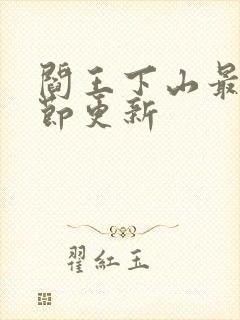 閻王下山最
節更新
翟紅玉